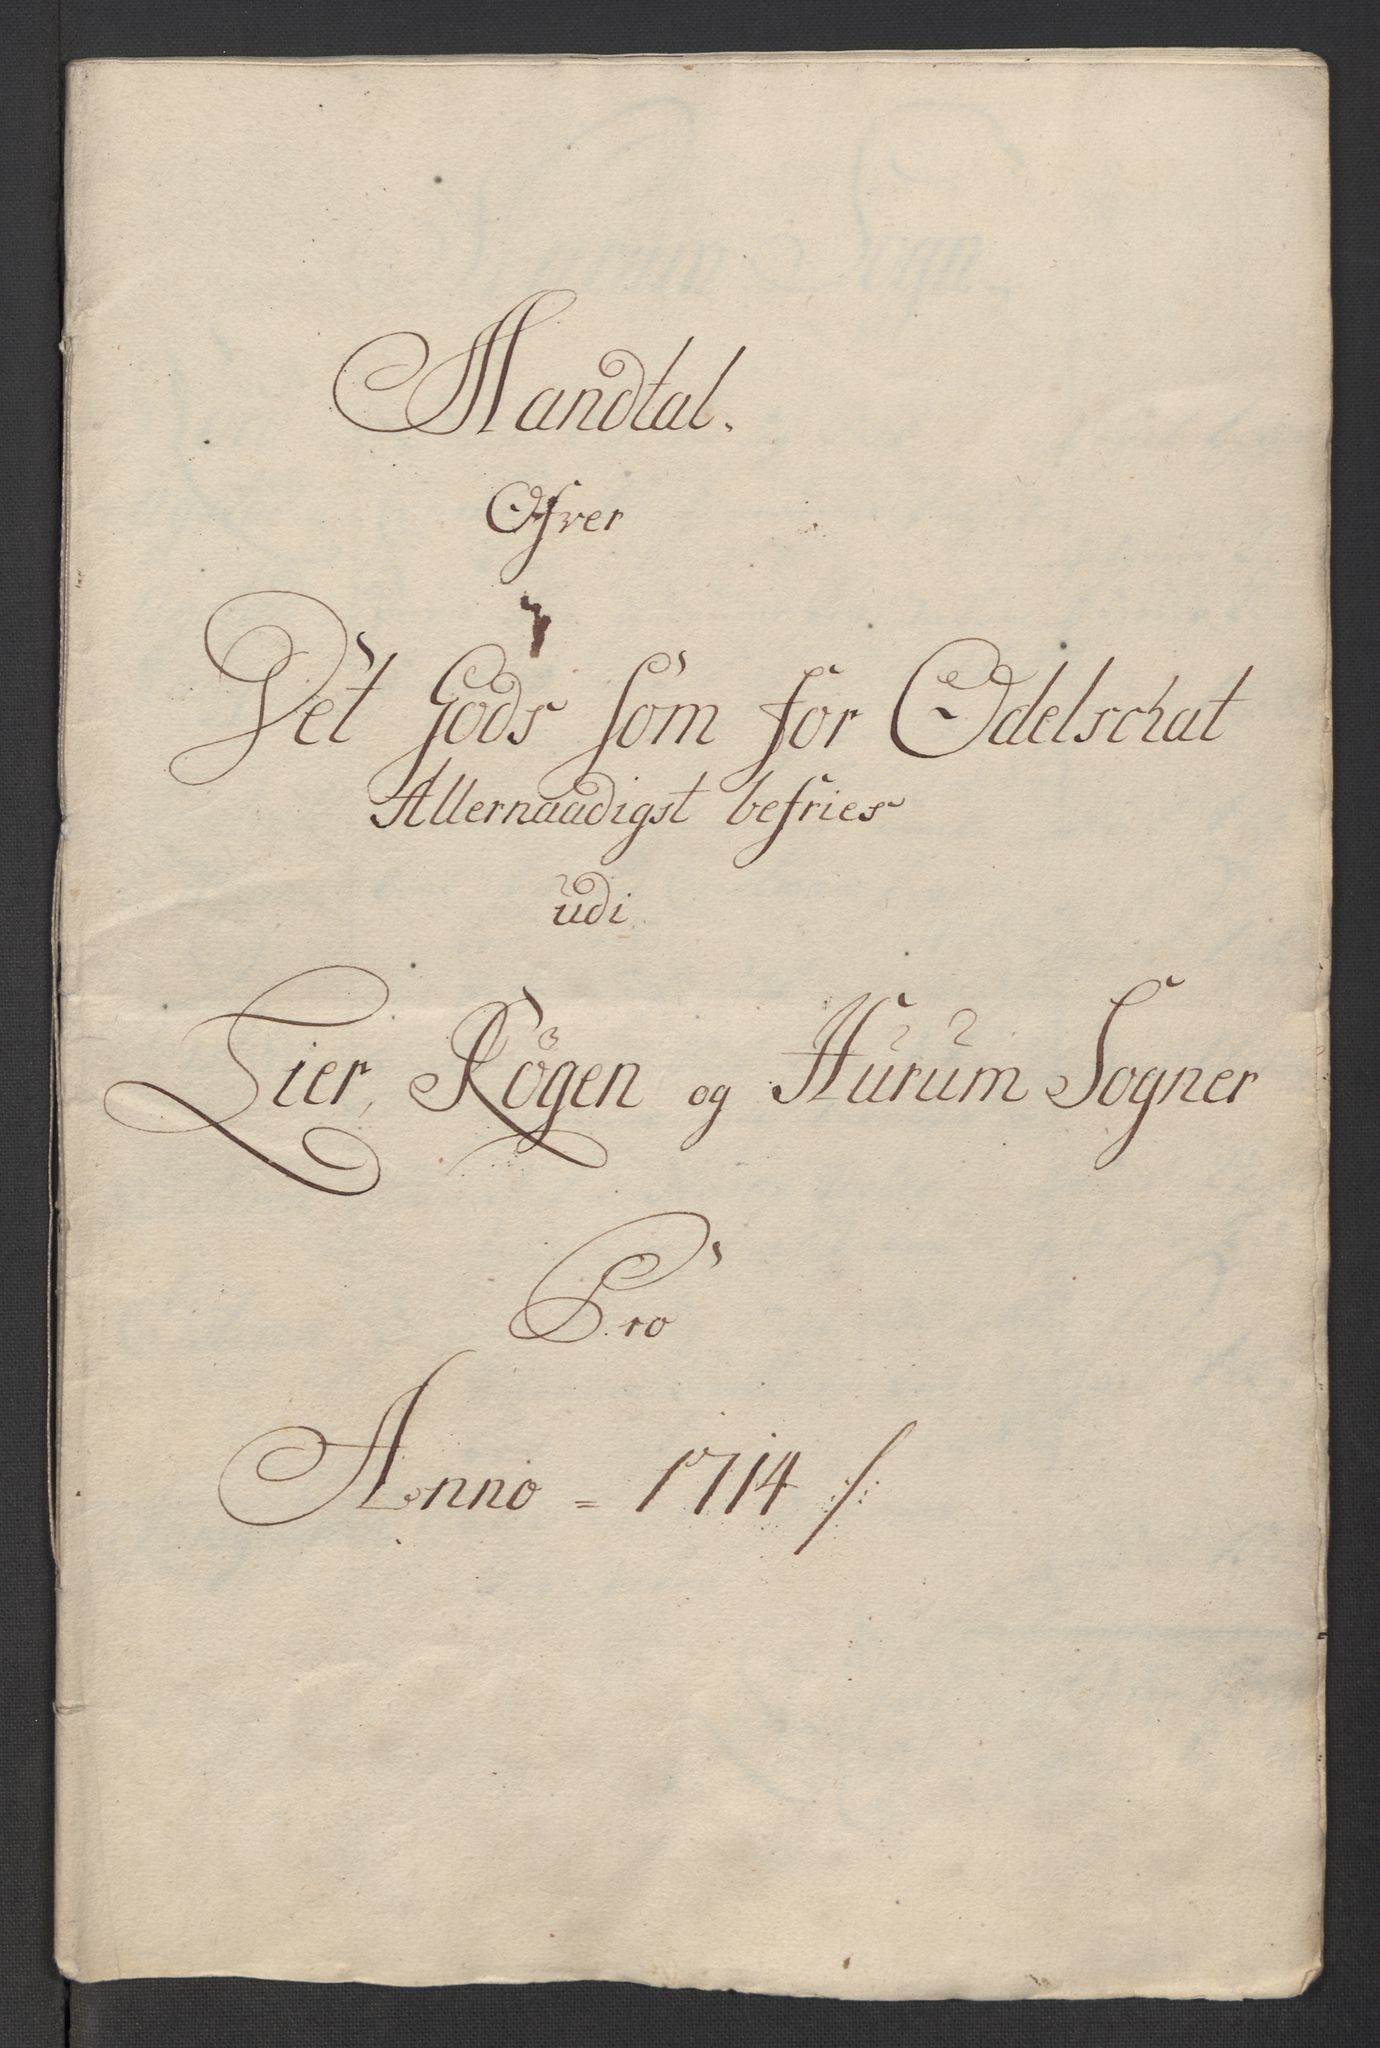 Mandtal.
Ofver
Det Gods som for Odelschat
Allernaadigst befries
udi
Lier, Rögen og Hurum Sogner
Pro
Anno = 1714 /